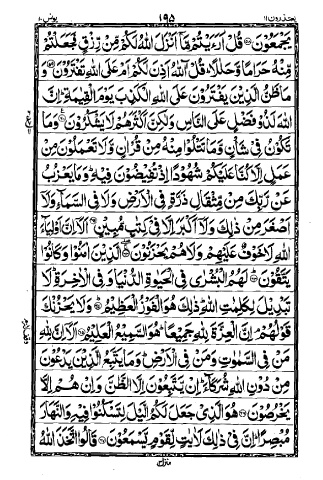 يعتذرون ١١ ١٩٥ يونس ١٠
يَجْمَعُوْنَ قُلْ اَرَءَيْتُمْ مَّاۤ اَنْزَلَ اللّٰهُ لَكُمْ مِّنْ رِّزْقٍ فَجَعَلْتُمْ
مِّنْهُ حَرَامًا وَّحَلٰلًا ؕ قُلْ آٰللّٰهُ اَذِنَ لَكُمْ اَمْ عَلَى اللّٰهِ تَفْتَرُوْنَ وَ
مَا ظَنُّ الَّذِيْنَ يَفْتَرُوْنَ عَلَى اللّٰهِ الْكَذِبَ يَوْمَ الْقِيٰمَةِ ؕ اِنَّ
اللّٰهَ لَذُوْ فَضْلٍ عَلَى النَّاسِ وَلٰكِنَّ اَكْثَرَهُمْ لَا يَشْكُرُوْنَ وَمَا
تَكُوْنُ فِيْ شَاْنٍ وَّمَا تَتْلُوْا مِنْهُ مِنْ قُرْاٰنٍ وَّلَا تَعْمَلُوْنَ مِنْ
عَمَلٍ اِلَّا كُنَّا عَلَيْكُمْ شُهُوْدًا اِذْ تُفِيْضُوْنَ فِيْهِ ؕ وَمَا يَعْزُبُ
عَنْ رَّبِّكَ مِنْ مِّثْقَالِ ذَرَّةٍ فِي الْاَرْضِ وَلَا فِي السَّمَآءِ وَلَاۤ
اَصْغَرَ مِنْ ذٰلِكَ وَلَاۤ اَكْبَرَ اِلَّا فِيْ كِتٰبٍ مُّبِيْنٍ اَلَاۤ اِنَّ اَوْلِيَآءَ
اللّٰهِ لَا خَوْفٌ عَلَيْهِمْ وَلَا هُمْ يَحْزَنُوْنَ الَّذِيْنَ اٰمَنُوْا وَكَانُوْا
يَتَّقُوْنَ لَهُمُ الْبُشْرٰى فِي الْحَيٰوةِ الدُّنْيَا وَفِي الْاٰخِرَةِ ؕ لَا
تَبْدِيْلَ لِكَلِمٰتِ اللّٰهِ ؕ ذٰلِكَ هُوَ الْفَوْزُ الْعَظِيْمُ وَلَا يَحْزُنْكَ
قَوْلُهُمْ ۘ اِنَّ الْعِزَّةَ لِلّٰهِ جَمِيْعًا ؕ هُوَ السَّمِيْعُ الْعَلِيْمُ اَلَاۤ اِنَّ لِلّٰهِ
مَنْ فِي السَّمٰوٰتِ وَمَنْ فِي الْاَرْضِ ؕ وَمَا يَتَّبِعُ الَّذِيْنَ يَدْعُوْنَ
مِنْ دُوْنِ اللّٰهِ شُرَكَآءَ ؕ اِنْ يَّتَّبِعُوْنَ اِلَّا الظَّنَّ وَاِنْ هُمْ اِلَّا
يَخْرُصُوْنَ هُوَ الَّذِيْ جَعَلَ لَكُمُ الَّيْلَ لِتَسْكُنُوْا فِيْهِ وَالنَّهَارَ
مُبْصِرًا ؕ اِنَّ فِيْ ذٰلِكَ لَاٰيٰتٍ لِّقَوْمٍ يَّسْمَعُوْنَ قَالُوا اتَّخَذَ اللّٰهُ